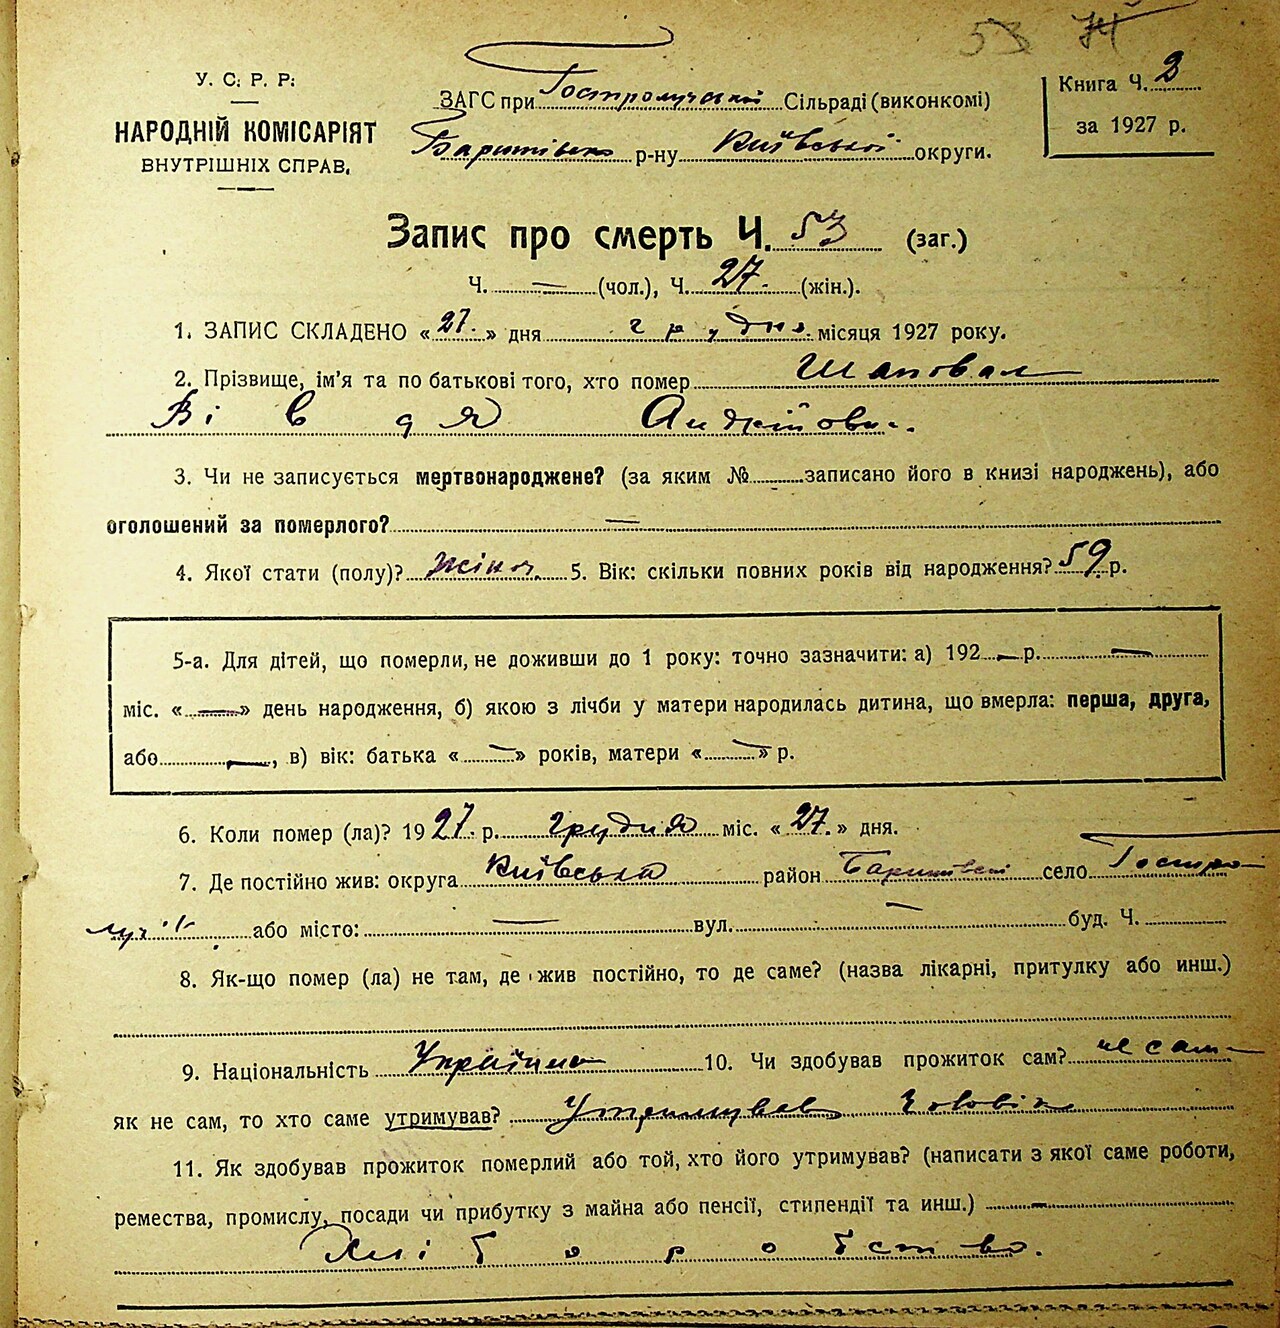 58 74
У. С. Р. Р.
НАРОДНІЙ КОМІСАРІЯТ
ВНУТРІШНІХ СПРАВ.
ЗАГС при Гостролучській Сільраді (виконкомі)
Баришівськ р-ну Київської округи.
Книга Ч. 2
за 1927 р.
Запис про смерть Ч. 53 (заг.)
Ч. — (чол.), Ч. 27. (жін.).
1. ЗАПИС СКЛАДЕНО «27.» дня грудня місяця 1927 року.
2. Прізвище, ім'я та по батькові того, хто помер Шаповал
Вівдя Андрійовн.
3. Чи не записується мертвонароджене? (за яким № записано його в книзі народжень), або
оголошений за померлого? —
4. Якої стати (полу)? жіноч. 5. Вік: скільки повних років від народження? 59 р.
5-а. Для дітей, що померли, не доживши до 1 року: точно зазначити: а) 192 — р. —
міс. «—» день народження, б) якою з лічби у матери народилась дитина, що вмерла: перша, друга,
або —, в) вік: батька «—» років, матери «—» р.
6. Коли помер (ла)? 1927. р. грудня міс. «27.» дня.
7. Де постійно жив: округа Київська район Баришівськ село Гостро-
луччя або місто: — вул. — буд. Ч.
8. Як-що помер (ла) не там, де жив постійно, то де саме? (назва лікарні, притулку або инш.)
9. Національність Українка 10. Чи здобував прожиток сам? не сам —
як не сам, то хто саме утримував? Утримував чоловік
11. Як здобував прожиток померлий або той, хто його утримував? (написати з якої саме роботи,
ремества, промислу, посади чи прибутку з майна або пенсії, стипендії та инш.) —
Хліборобство.